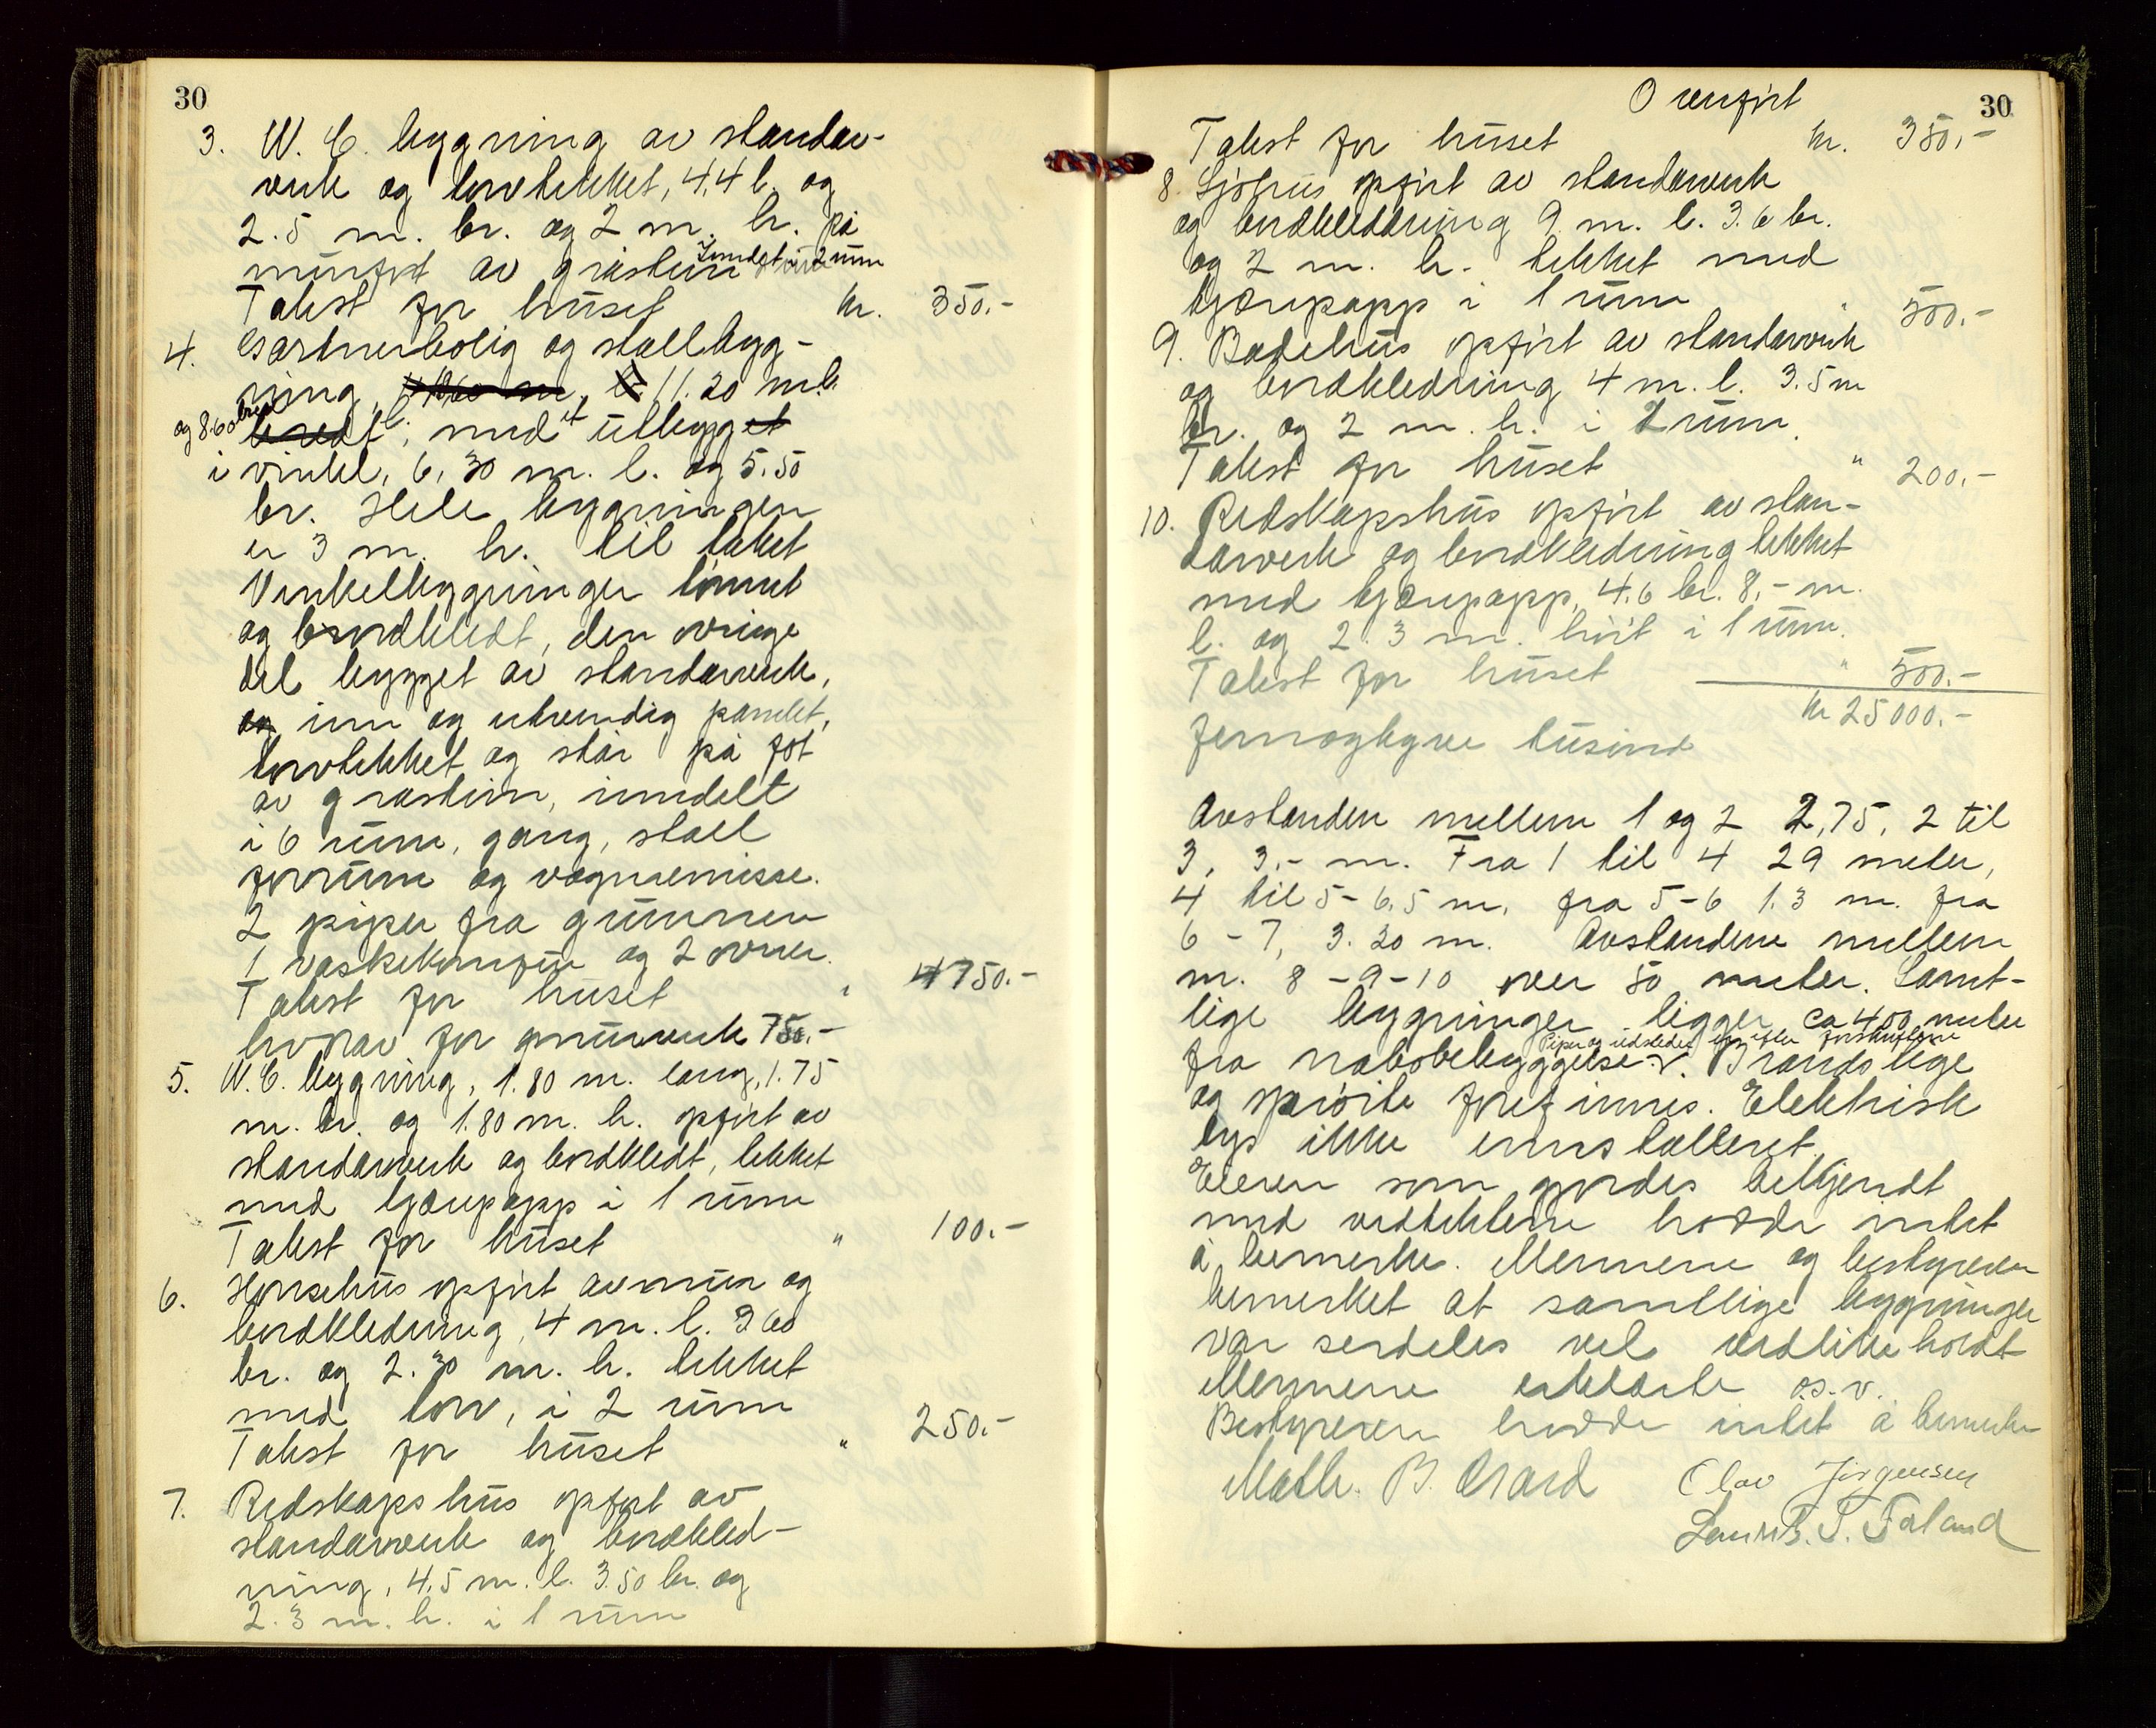 30
3. W. C. bygning av standar-
verk og torvtekket, 4,4 l. og
2.5 m. br. og 2 m. h. på
murfot av gråsten Inndelt i 2 rum
Takst for huset kr. 350.-
4. Gartnerbolig og stallbygg-
ning, 11.20 m.l.
og 8.60 bred, med et utbygg
i vinkel, 6,30 m. l. og 5.50
br. Hele bygningen
er 3 m. h. til taket
Vinkelbygningen tømret
og bordkledt, den øvrige
del bygget av standarverk,
inn og utvendig panelt,
torvtekket og står på fot
av gråstein, inndelt
i 6 rum, gang, stall
forrum og vognremisse.
2 piper fra grunnen
1 vaskekomfur og 2 ovner.
Takst for huset " 4750.-
hvorav for grunnverk 750.-
5. W. C. bygning, 1.80 m. lang, 1.75
m. br. og 1.80 m. h. opført av
standarverk og bordkledt, tekket
med tjærepapp i 1 rum
Takst for huset " 100.-
6. Hønsehus opført av mur og
bordkledning, 4 m. l. 3.60
br. og 2.30 m. h. tekket
med torv, i 2 rum
Takst for huset " 250.-
7. Redskapshus opført av
standarverk og bordkled-
ning, 4,5 m. l. 3.50 br. og
2.3 m. h. i 1 rum
30
Overført
Takst for huset kr. 350.-
8. Sjøhus opført av standarverk
og bordkleddning 9 m. l. 3.6 br.
og 2 m. h. tekket med
tjærepapp i 1 rum " 500.-
9. Badehus opført av standarverk
og bordkledning 4 m. l. 3.5 m
br. og 2 m. h. i 2 rum.
Takst for huset " 200.-
10. Redskapshus opført av stan-
darverk og bordkledning tekket
med tjærepapp, 4.6 br. 8,- m.
l. og 2.3 m. høit i 1 rum.
Takst for huset " 500.-
kr 25000.-
femogtyve tusind
Avstanden mellem 1 og 2 2,75, 2 til
3, 3.- m. Fra 1 til 4 29 meter,
4 til 5 - 6,5 m, fra 5-6 1.3 m. fra
6 - 7, 3.20 m. Avstandene mellem
nr. 8 - 9 - 10 over 50 meter. Samt-
lige bygninger ligger ca 400 meter
fra nabobebyggelse. Piper og ildsteder er efter forskriftene Brandstige
og sprøite forefinnes. Elektrisk
lys ikke innstalleret.
Eieren som gjordes bekjendt
med vedtektene hadde intet
å bemerke. Mennene og bestyreren
bemerket at samtlige bygninger
var serdeles vel vedlikeholdt
Mennene erklærte o.s.v.
Bestyreren hadde intet å bemerke
Math. B. Olav Jørgensen
T. Faland